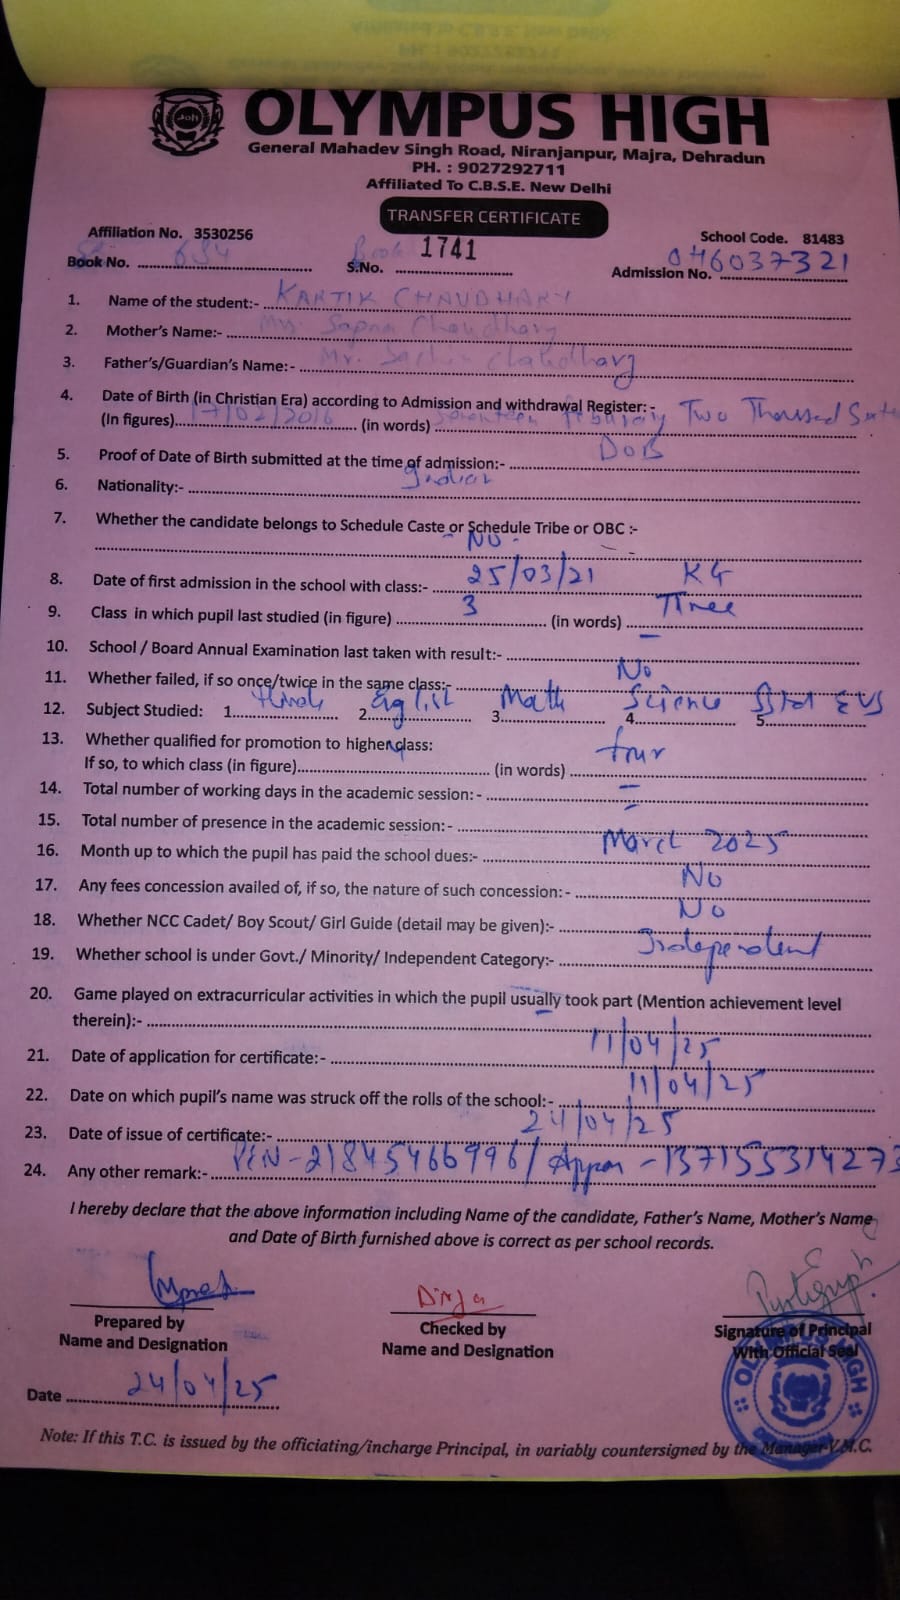 OLYMPUS HIGH
General Mahadev Singh Road, Niranjanpur, Majra, Dehradun
PH. : 9027292711
Affiliated To C.B.S.E. New Delhi
TRANSFER CERTIFICATE
Affiliation No. 3530256
School Code. 81483
Book No. 634
S.No. 1741
Admission No. 046037321
1. Name of the student:- KARTIK CHAUDHARY
2. Mother's Name:- Mrs. Sapna Choudhary
3. Father's/Guardian's Name:- Mr. Sachin Chaudhary
4. Date of Birth (in Christian Era) according to Admission and withdrawal Register:-
(In figures) 17/02/2016 (in words) Seventeen Two Thousand
5. Proof of Date of Birth submitted at the time of admission:- DOB
6. Nationality:- Indian
7. Whether the candidate belongs to Schedule Caste or Schedule Tribe or OBC :-
NO
8. Date of first admission in the school with class:- 25/03/21 KG
9. Class in which pupil last studied (in figure) 3 (in words) Three
10. School / Board Annual Examination last taken with result:- –
11. Whether failed, if so once/twice in the same class:- No
12. Subject Studied: 1. Hindi 2. English 3. Math 4. Science 5. EVS
13. Whether qualified for promotion to higher class:
If so, to which class (in figure) (in words) four
14. Total number of working days in the academic session: - –
15. Total number of presence in the academic session:- –
16. Month up to which the pupil has paid the school dues:- March 2025
17. Any fees concession availed of, if so, the nature of such concession: - No
18. Whether NCC Cadet/ Boy Scout/ Girl Guide (detail may be given):- No
19. Whether school is under Govt./ Minority/ Independent Category:- Independent
20. Game played on extracurricular activities in which the pupil usually took part (Mention achievement level
therein):- –
21. Date of application for certificate:- 11/04/25
22. Date on which pupil's name was struck off the rolls of the school:- 11/04/25
23. Date of issue of certificate:- 24/04/25
24. Any other remark:- PEN-21845466996/ Appar -137155314273
I hereby declare that the above information including Name of the candidate, Father's Name, Mother's Name
and Date of Birth furnished above is correct as per school records.
Prepared by
Name and Designation
Checked by
Name and Designation
Signature of Principal
With Official Seal
OLYMPUS HIGH
Date 24/04/25
Note: If this T.C. is issued by the officiating/incharge Principal, in variably countersigned by the Manager V.M.C.